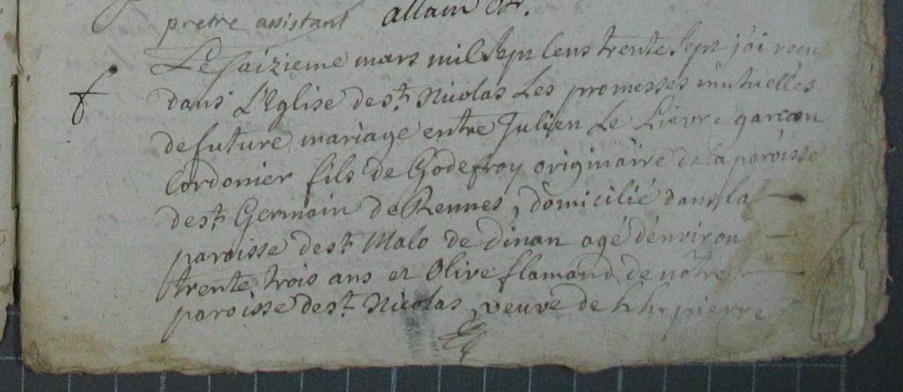 pretre assistant allain Ctr.
Le saizieme mars mil sept cens trente sept j'ai recu
dans L'Eglise de st Nicolas Les promesses mutuelles
de future mariage entre Julien Le Lievre garcon
Cordonier fils de Godefroy originaire de la paroisse
de st Germain de Rennes, domicilié dans la
paroisse de st Malo de Dinan agé d'environ
trente trois ans et Olive flamand de nôtre
paroisse de st Nicolas, veuve de pierre